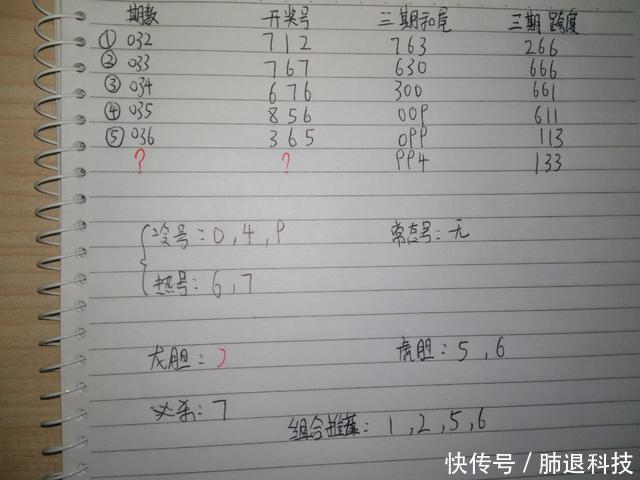 期数 开奖号 三期和尾 三期跨度
① 032 712 763 266
② 033 767 630 666
③ 034 676 300 661
④ 035 856 009 611
⑤ 036 365 099 113
? ? 994 133
冷号:0,4,9 常态号:无
热号:6,7
龙胆: 虎胆:5,6
必杀:7
组合推荐:1,2,5,6
快传号/肺退科技